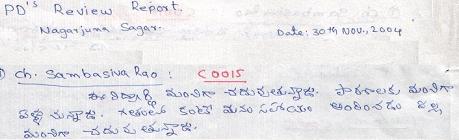 PD'S Review Report.
Nagarjuna Sagar.
Date: 30th NOV., 2004
ch. Sambasiva Rao : C0015
ఈ విద్యార్థి మంచిగా చదువుతున్నాడు. పాఠశాలకు మంచిగా
వెళ్తున్నాడు. గతంలో కంటే మనం సహాయం అందించడం వల్ల
మంచిగా చదువుతున్నాడు.